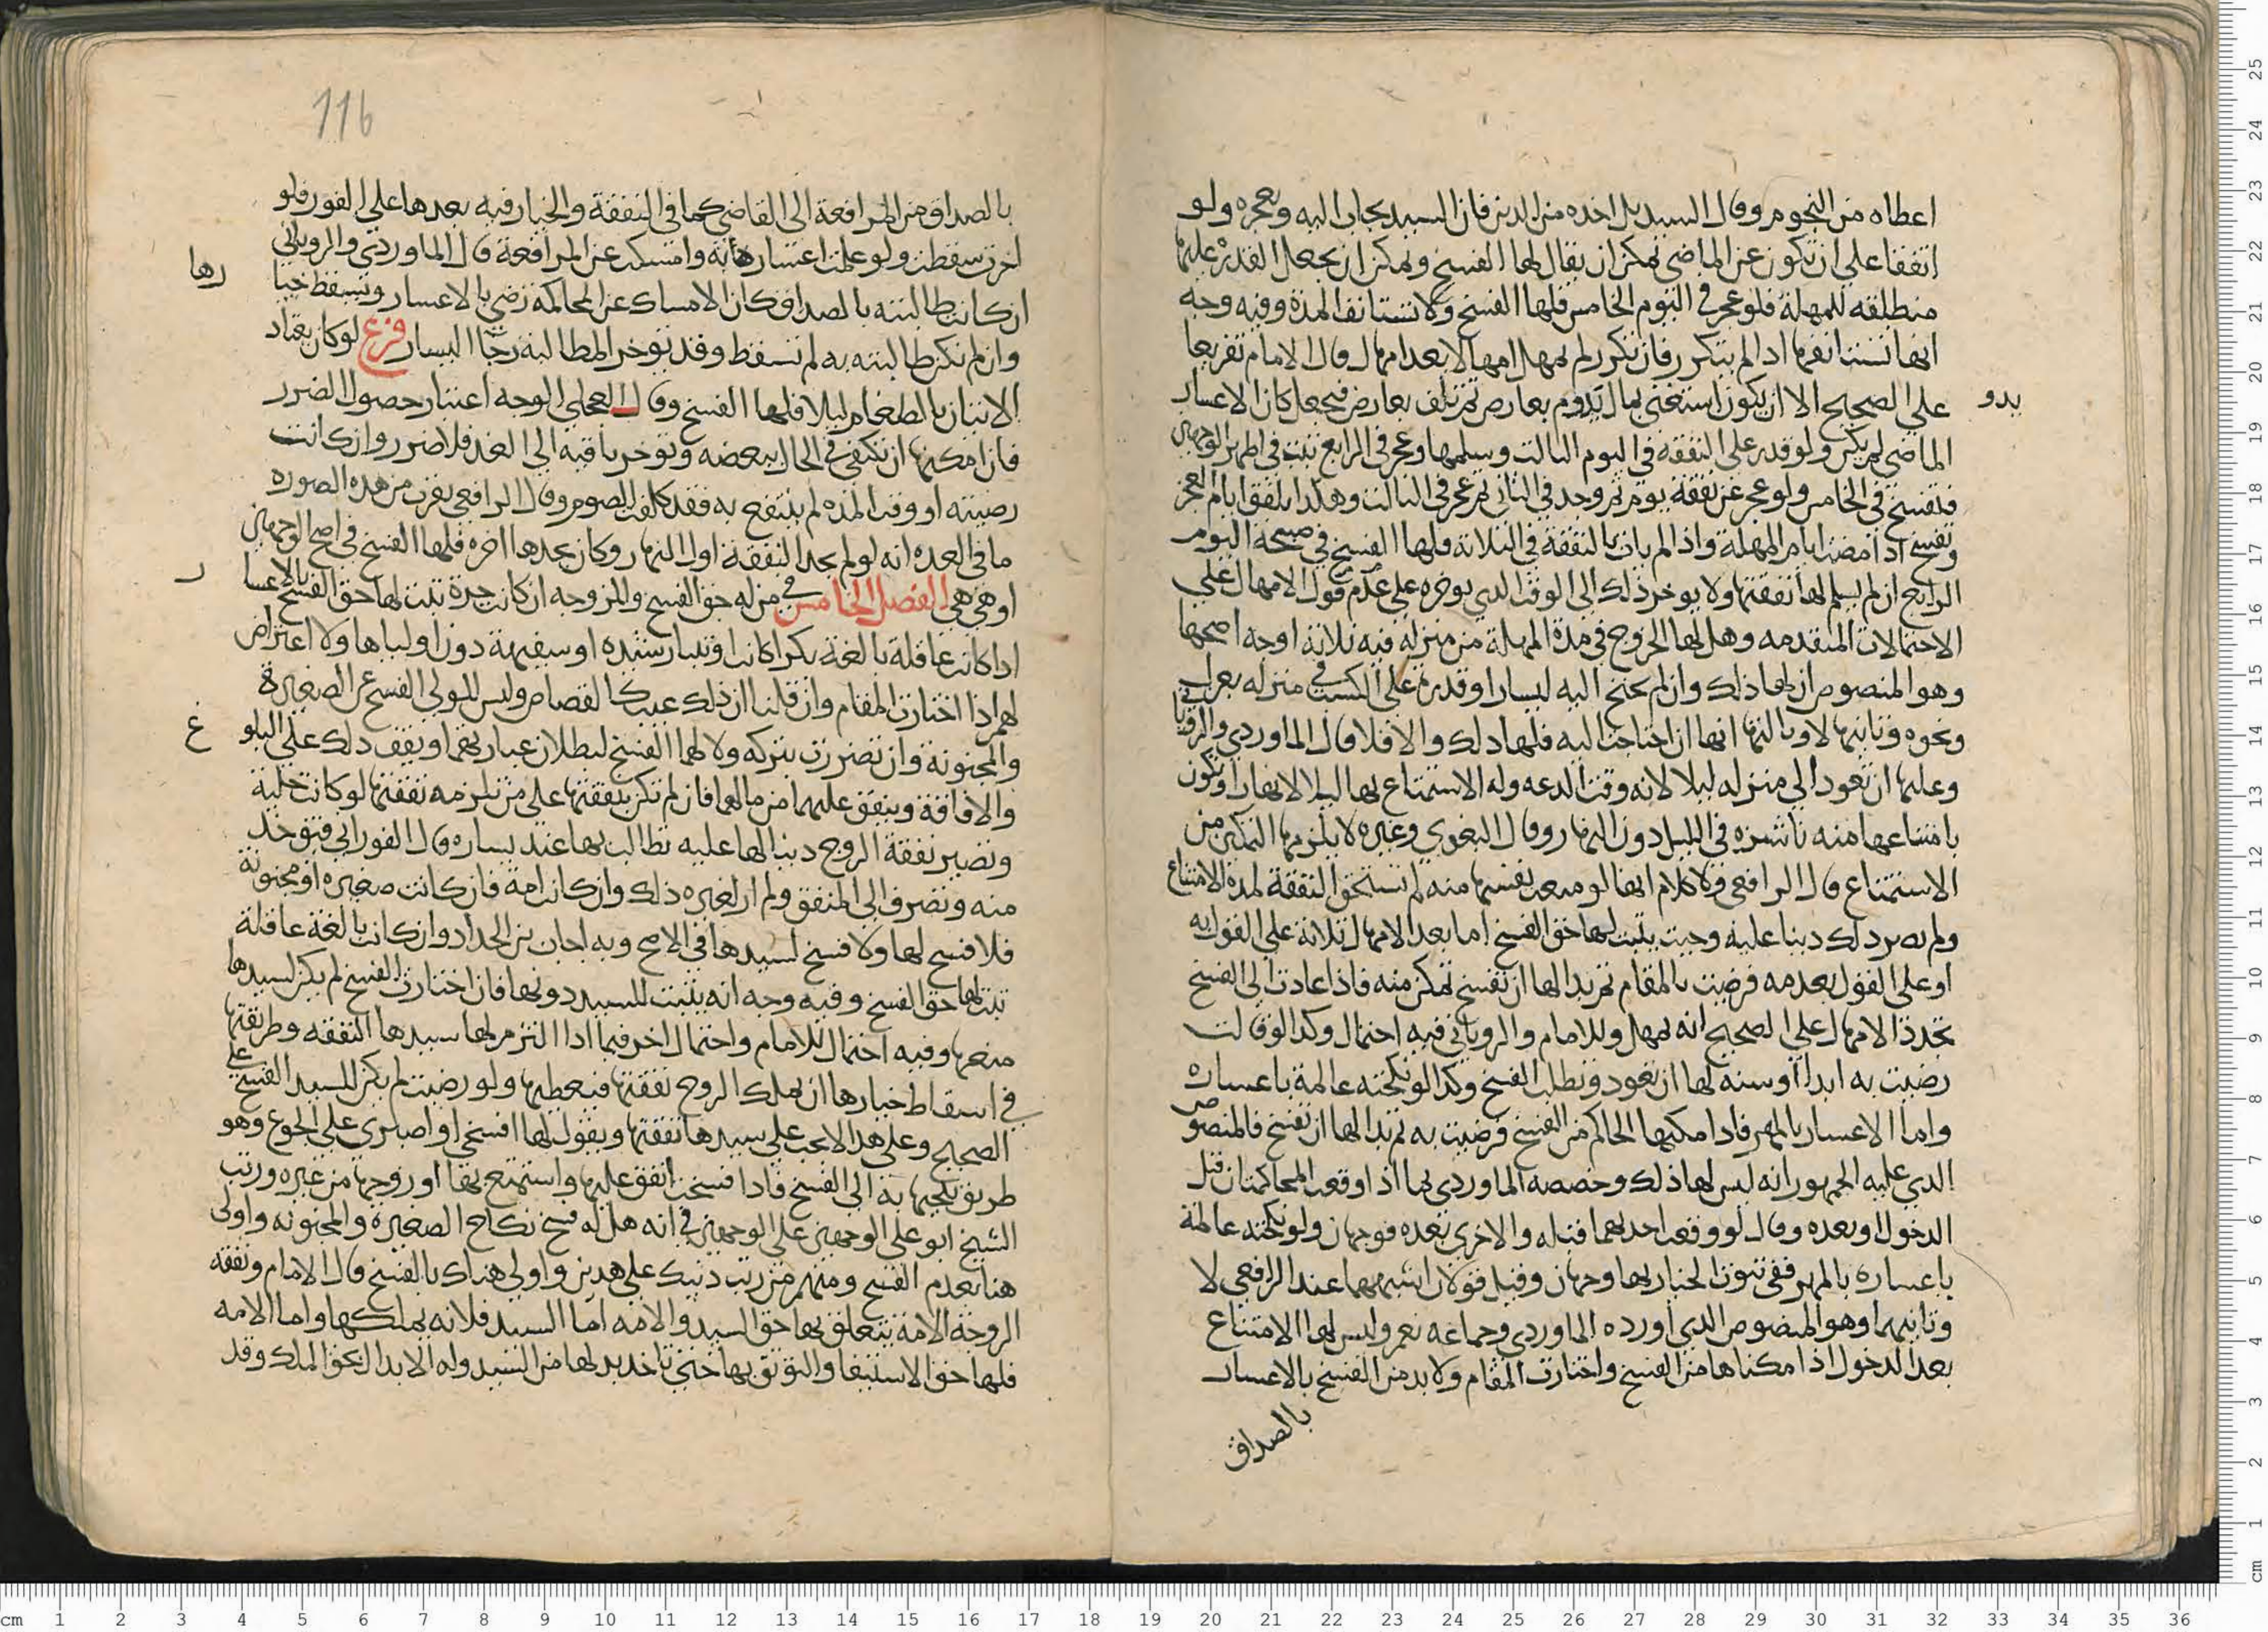 اعطاه من النجوم وقال السيد بل اخذه من الدين فان السيد يجاب اليه ويعجزه ولو
اتفقا على ان تكون عن الماضي يمكن ان يقال لها الفسخ ويمكن ان يجعل القدرة عليها
منطلقه للمهلة فلو عجز في اليوم الخامس فلها الفسخ ولا تستانف المدة وفيه وجه
انها تستانفها اذا لم يتكرر فان تكرر لم يمهل امهالا بعد امهال قال الامام تفريعا
على الصحيح الا ان يكون استغنى بمال يدوم بعارض ثم تلف بعارض فيجعل كان الاعسار
بدو
الماضي لم يكن ولو قدر على النفقه في اليوم الثالث وسلمها وعجز في الرابع تبنى في اظهر الوجهين
فتفسخ في الخامس ولو عجز عن نفقة يوم ثم وجد في الثاني ثم عجز في الثالث وهكذا تلفق ايام العجز
وتفسخ اذا مضت ايام المهلة واذا لم يات بالنفقة في الثلاثة فلها الفسخ في صبيحة اليوم
الرابع ان لم يسلم لها نفقتها ولا يوخر ذلك الى الوقت الذي يوخره على عدم قول الامهال على
الاحتمالات المتقدمه وهل لها الخروج في مدة المهلة من منزله فيه ثلاثة اوجه اصحها
وهو المنصوص ان لها ذلك وان لم يحتج اليه ليسار او قدرة على الكسب في منزله بغزل
ونحوه وثانيها لا وثالثها انها ان احتاجت اليه فلها ذلك والا فلا قال الماوردي والروياني
وعليها ان تعود الى منزله ليلا لانه وقت الدعه وله الاستمتاع بها ليلا لا نهارا وتكون
بامتناعها منه ناشزه في الليل دون النهار وقال البغوي وغيره لا يلزمها التمكين من
الاستمتاع قال الرافعي ولا كلام انها لو منعت نفسها منه لم تستحق النفقة لمدة الامتناع
ولم يصر ذلك دينا عليه وحيث يثبت لها حق الفسخ اما بعد الامهال ثلاثة على القول به
او على القول بعدمه فرضيت بالمقام ثم بدا لها ان تفسخ تمكن منه فاذا عادت الى الفسخ
تجدد الامهال على الصحيح انه يمهل وللامام والروياني فيه احتمال وكذا لو قالت
رضيت به ابدا او سنه لها ان تعود وتطلب الفسخ وكذا لو نكحته عالمة باعساره
واما الاعسار بالمهر فاذا مكنها الحاكم من الفسخ فرضيت به ثم بدا لها ان تفسخ فالمنصوص
الذي عليه الجمهور انه ليس لها ذلك وخصصه الماوردي بما اذا وقعت المحاكمتان قبل
الدخول او بعده وقال لو وقعت احديهما قبله والاخرى بعده فوجهان ولو نكحته عالمة
باعساره بالمهر ففي ثبوت الخيار بها وجهان وقيل قولان اشبههما عند الرافعي لا
وثانيهما وهو المنصوص الذي اورده الماوردي وجماعه نعم وليس لها الامتناع
بعد الدخول اذا مكناها من الفسخ واختارت المقام ولا بد من الفسخ بالاعسار
بالصداق
116
بالصداق من المرافعة الى القاضي كما في النفقة والخيار فيه بعدها على الفور فلو
اخرت سقطت ولو علمت اعساره به وامسكت عن المرافعة قال الماوردي والروياني
رها
ان كانت طالبته بالصداق كان الامساك عن المحاكمه رضي بالاعسار وتسقط خيا
وان لم تكن طالبته به لم تسقط وقد توخر المطالبة رجا اليسار فرع لو كان يعتاد
الاتيان بالطعام ليلا فلها الفسخ وقال العجلي الوجه اعتبار حصول الضرر
فان امكنها ان تكتفي في الحال ببعضه وتوخر باقيه الى الغد فلا ضرر وان كانت
رضيته او وقت المده لم ينتفع به فقد كلفت الصوم وقال الرافعي يقرب من هذه الصوره
ما في العده انه لو لم يجد النفقة اول النهار وكان يجدها اخره فلها الفسخ في اصح الوجهين
او هي هي الفصل الخامس في من له حق الفسخ والمزوجه ان كانت حرة ثبت لها حق الفسخ بالاعسا
ر
اذا كانت عاقلة بالغة بكرا كانت او ثيبا رشيده او سفيهة دون اوليايها ولا اعتراض
لهم اذا اختارت المقام وان قلنا ان ذلك عيب كالقصاص وليس للولي الفسخ عن الصغيرة
والمجنونة وان تضررت بتركه ولا لهما الفسخ لبطلان عبارتهما ويقف ذلك على البلو
غ
والافاقة وينفق عليهما من مالهما فان لم تكن بنفقتها على من تلزمه نفقتها لو كانت خلية
وتصير نفقة الزوج دينا لها عليه تطالب بها عند يساره قال الفوراني فتوخذ
منه وتصرف الى المنفق ولم ار لغيره ذلك وان كانت امة فان كانت صغيره او مجنونة
فلا فسخ لها ولا فسخ لسيدها في الاصح وبه اجاب بن الحداد وان كانت بالغة عاقلة
ثبت لها حق الفسخ وفيه وجه انه يثبت للسيد دونها فان اختارت الفسخ لم يكن لسيدها
منعها وفيه احتمال للامام واحتمال اخر فيما اذا التزم لها سيدها النفقه وطريقتها
في اسقاط خيارها ان يملك الزوج نفقتها فيعطيها ولو رضيت لم يكن للسيد الفسخ على
الصحيح وعلى هذا لا يجب على سيدها نفقتها ويقول لها افسخي او اصبري على الجوع وهو
طريق يلجيها به الى الفسخ فاذا فسخت انفق عليها واستمتع بها او زوجها من غيره ورتب
الشيخ ابو علي الوجهين على الوجهين في انه هل له فسخ نكاح الصغيرة والمجنونه واولى
هنا بعدم الفسخ ومنهم من رتب ذينك على هذين واولى هناك بالفسخ قال الامام ونفقه
الزوجة الامة يتعلق بها حق السيد والامه اما السيد فلانه يملكها واما الامه
فلها حق الاستيفا والتوثق بها حتى تاخذ بدلها من السيد وله الابدال بحق الملك وقد